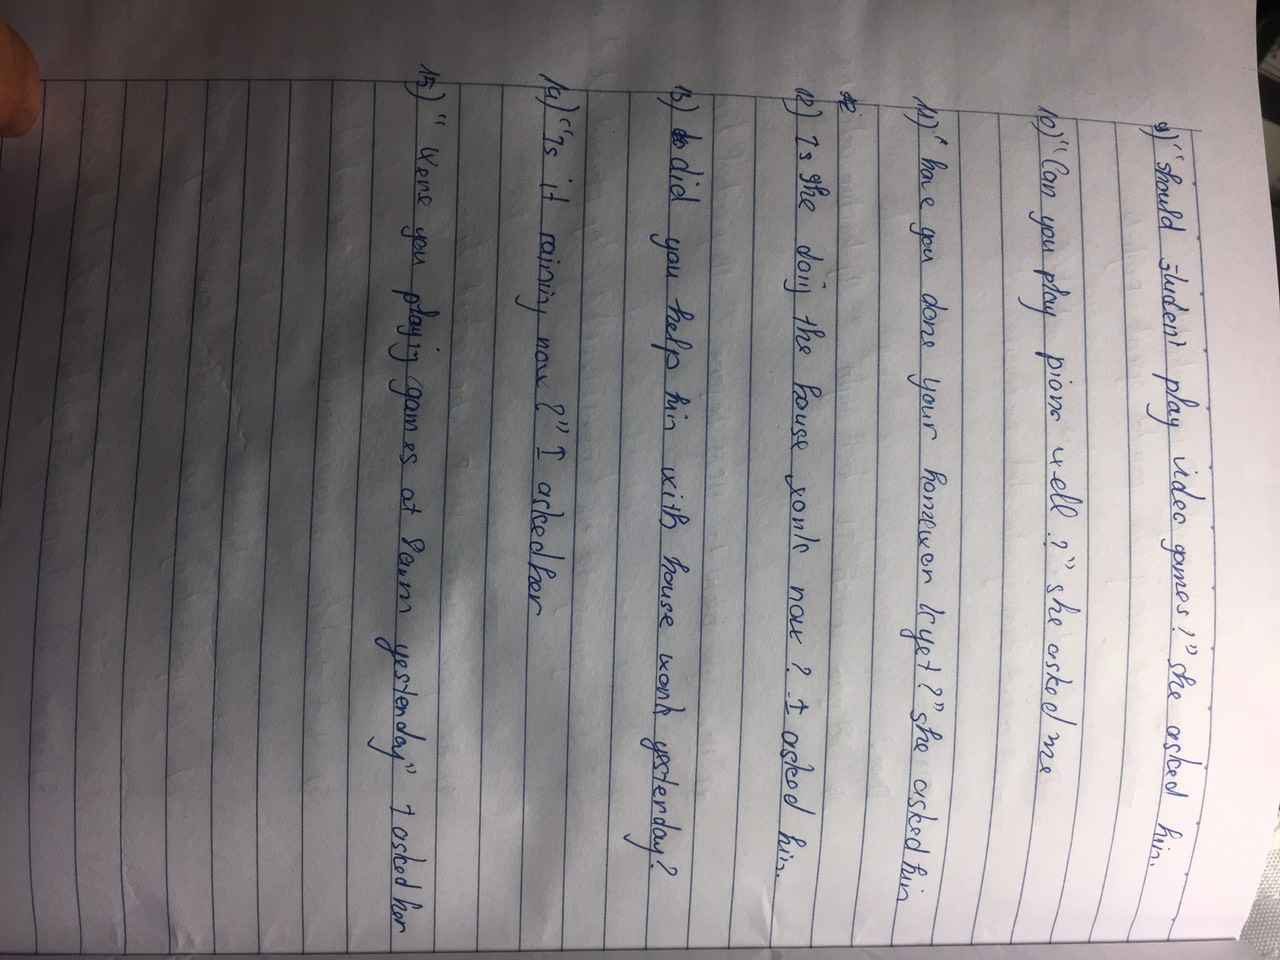 9) "should student play video games?" she asked him.
10) "Can you play piano well?" she asked me
11) "have you done your homewor kyet?" she asked him
12) Is she doing the house wonk now? I asked him.
13) did you help him with house work yesterday?
14) "Is it raining now?" I asked her
15) "Were you playing games at 8am yesterday" I asked her